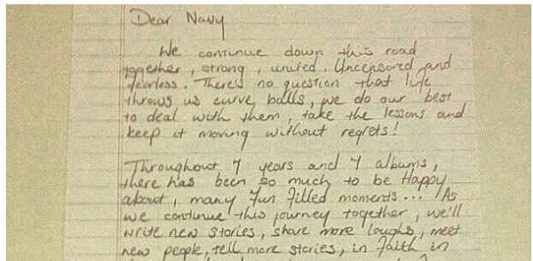 Dear Navy
We continue down this road
together, strong, united. Uncensored and
fearless. There's no question that life
throws us curve balls, we do our best
to deal with them, take the lessons and
keep it moving without regrets!
Throughout 7 years and 7 albums,
there has been so much to be Happy
about, many fun filled moments... As
we continue this journey together, we'll
write new stories, share more laughs, meet
new people, tell more stories, in faith in